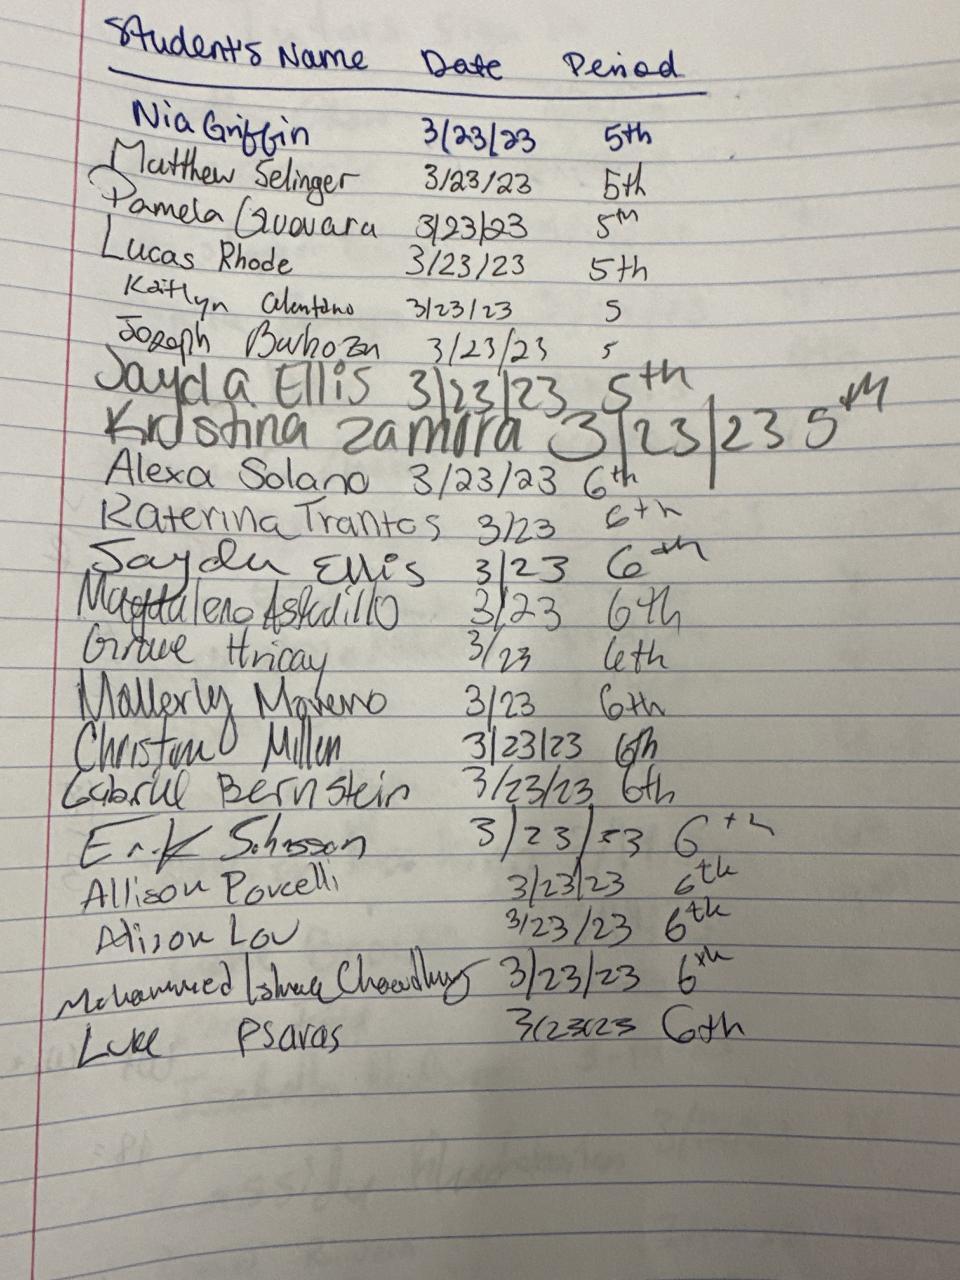 Student's Name Date Period
Nia Griffin 3/23/23 5th
Matthew Selinger 3/23/23 5th
Pamela Guovara 3/23/23 5th
Lucas Rhode 3/23/23 5th
Kaitlyn 3/23/23 5
Joseph 3/23/23 5
Jayda Ellis 3/23/23 5th
Kristina Zamora 3/23/23 5th
Alexa Solano 3/23/23 6th
Katerina Trantos 3/23 6th
Jayda Ellis 3/23 6th
3/23 6th
Hricay 3/23 6th
Mallerly Moreno 3/23 6th
3/23/23 6th
Gabriel Bernstein 3/23/23 6th
Erik 3/23/23 6th
Allison Porcelli 3/23/23 6th
Alison Lou 3/23/23 6th
Mohammed 3/23/23 6th
Luke Psaras 3/23/23 6th